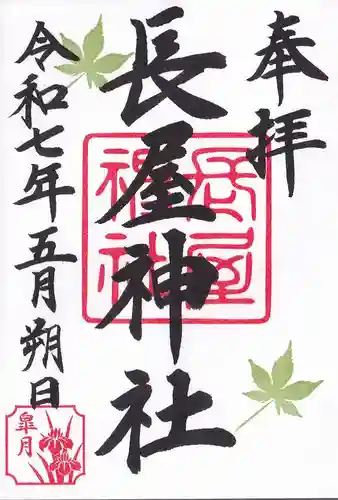 奉拝
長屋神社
長屋
神社
令和七年五月朔日
皐月